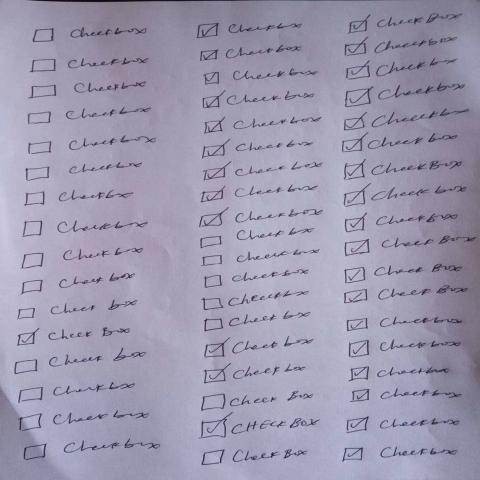 Checkbox
Checkbox
Checkbox
Checkbox
Checkbox
Checkbox
Checkbox
Checkbox
Checkbox
Check box
Check box
Check Box
Check box
Checkbox
Checkbox
Checkbox
Checkbox
Checkbox
Checkbox
Checkbox
Checkbox
Checkbox
Check box
Checkbox
Checkbox
Check box
Check box
Check box
Checkbox
Check box
Check box
Check box
Check Box
CHECK BOX
Check Box
Check Box
Checkbox
Checkbox
Checkbox
Checkbox
Checkbox
Check Box
Check box
CheckBox
Check Box
Check Box
Check Box
Checkbox
Checkbox
Checkbox
Checkbox
Checkbox
Checkbox